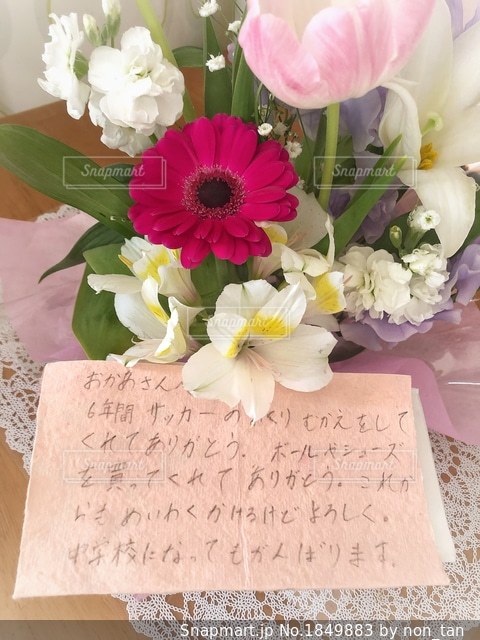 おかあさんへ
6年間サッカーのおくりむかえをして
くれてありがとう。ボールやシューズ
を買ってくれてありがとう。これか
らもめいわくかけるけどよろしく。
中学校になってもがんばります。
Snapmart
Snapmart
Snapmart
Snapmart
Snapmart
Snapmart.jp No.1849883 by non_tan